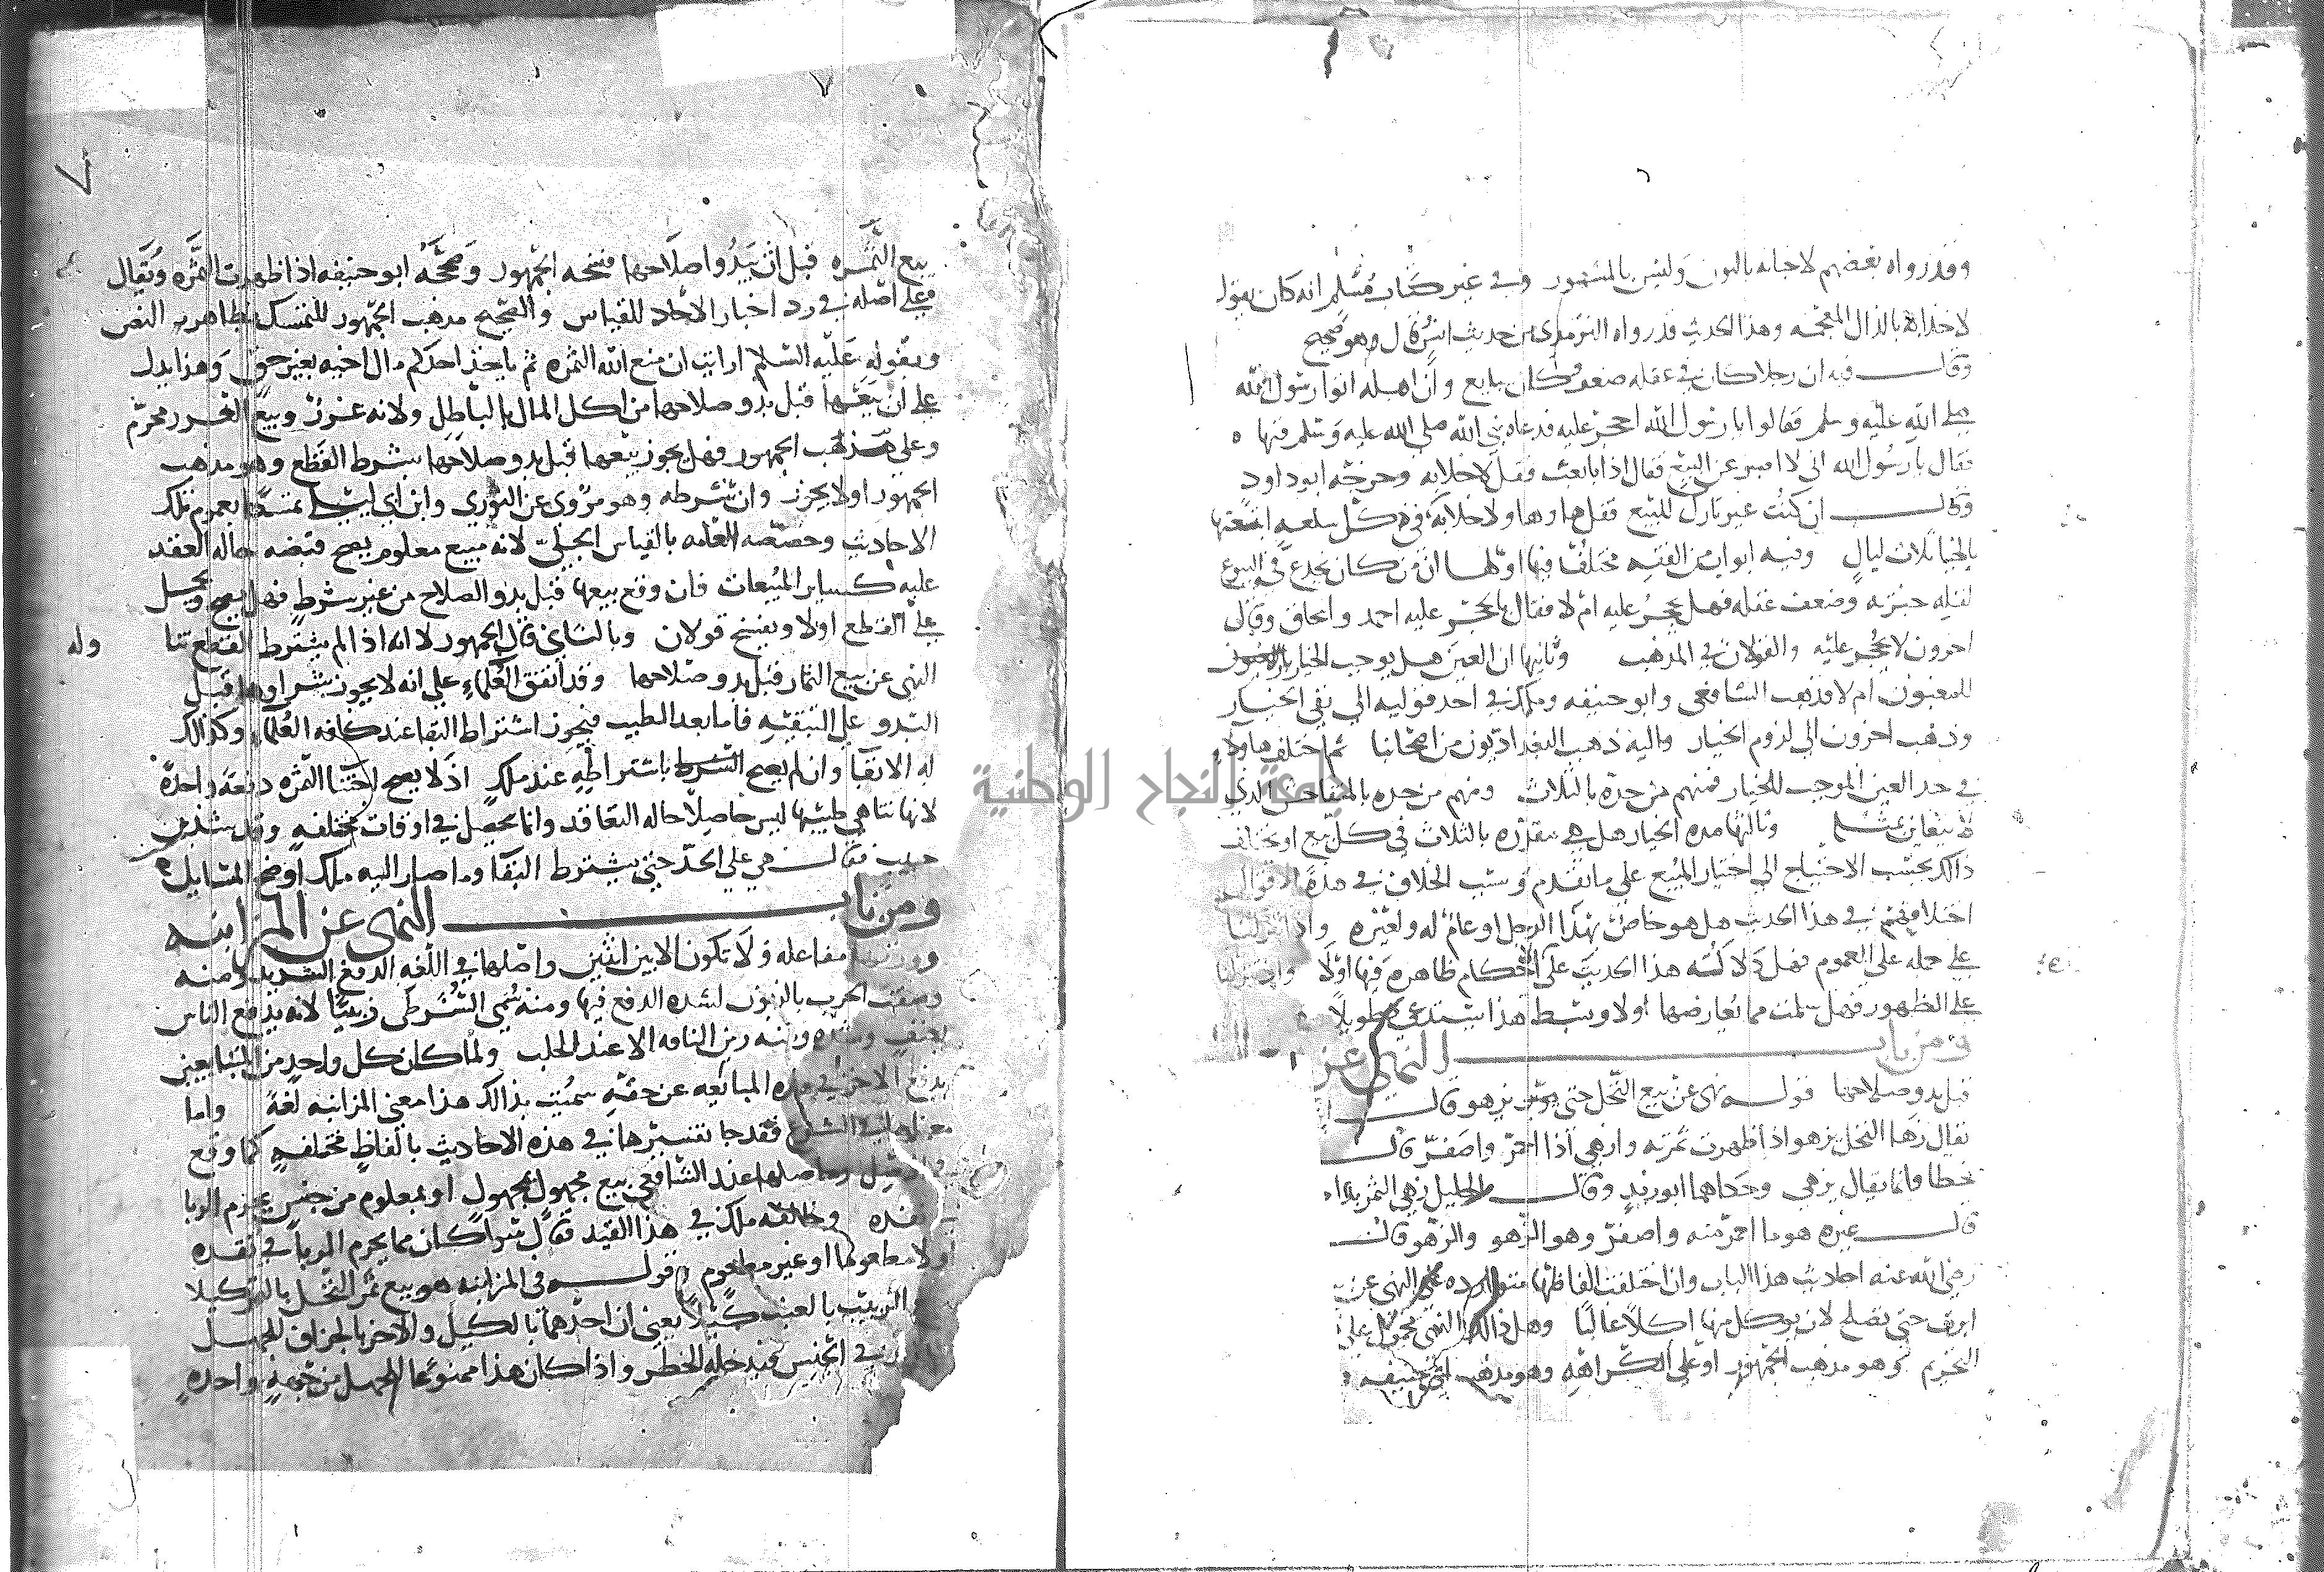 وقد رواه بعضهم لا خيانه بالنون وليس بالمشهور وفي غير كتاب مسلم انه كان يقول
لا خذابه بالذال المعجمه وهذا الحديث قد رواه الترمذي من حديث انس وقال وهو صحيح
وقال فيه ان رجلا كان في عقله ضعف وكان يبايع وان اهله اتوا رسول الله
صلى الله عليه وسلم فقالوا يا رسول الله احجر عليه فدعاه نبي الله صلى الله عليه وسلم فنهاه
فقال يا رسول الله اني لا اصبر عن البيع فقال اذا بايعت فقل لا خلابه وخرجه ابو داود
وقال ان كنت غير تارك للبيع فقل ها وها ولا خلابه في كل سلعه ابتعتها
بالخيار ثلاث ليال وفيه ابواب من الفقه مختلف فيها اولها ان من كان يخدع في البيوع
لقله خبرته وضعف عقله فهل يحجر عليه ام لا فقال بالحجر عليه احمد واسحاق وقال
اخرون لا يحجر عليه والقولان في المذهب وثانيها ان الغبن هل يوجب الخيار
للمغبون ام لا فذهب الشافعي وابو حنيفه وملك في احد قوليه الى نفي الخيار
وذهب اخرون الى لزوم الخيار واليه ذهب البغداديون من اصحابنا ثم اختلف هاولاء
في حد الغبن الموجب للخيار فمنهم من حده بالثلاث ومنهم من حده بالمتفاحش الذي
لا يتغابن بمثله وثالثها مده الخيار هل هي مقدره بالثلاث في كل بيع او تختلف
ذالك بحسب الاحتياج الى اختيار المبيع على ما تقدم وسبب الخلاف في هذه الاقوال
اختلافهم في هذا الحديث هل هو خاص بهذا الرجل او عام له ولغيره واذا تنزلنا
على حمله على العموم فهل دلالته هذا الحديث على الاحكام ظاهره فيها اولا واذا تنزلنا
على الظهور فهل سلمت مما يعارضها اولا وبسط هذا يستدعي تطويلا
ومن باب النهي عن
قبل بدو صلاحها قوله نهى عن بيع النخل حتى يزهو قال
يقال زها النخل يزهو اذا ظهرت ثمرته وازهى اذا احمر واصفر قال
خطا وانما يقال يزهي وحكاهما ابو زيد وقال الخليل زهى الثمر بدا
قال غيره هو ما احمر منه واصفر وهو الزهو والزهو قال
رضي الله عنه احاديث هذا الباب وان اختلفت الفاظها متواردة على النهي عن
حتى تصلح لان يوكل منها اكلا غالبا وهل ذالك النهي محمول على
التحريم وهو مذهب الجمهور او على الكراهه وهو مذهب ابي حنيفه
بيع الثمره قبل ان يبدوا صلاحها فسخه الجمهور وصححه ابو حنيفه اذا ظهرت الثمره ويقال
على اصله في رد اخبار الاحاد للقياس والصحيح مذهب الجمهور للتمسك بظاهر النص
وبقوله عليه السلام ارايت ان منع الله الثمره ثم ياخذ احدكم مال اخيه بغير حق وهذا يدل
على ان بيعها قبل بدو صلاحها من اكل المال بالباطل ولانه غرر وبيع الغرر محرم
وعلى مذهب الجمهور فهل يجوز بيعها قبل بدو صلاحها بشرط القطع وهو مذهب
الجمهور اولا يجوز وان شرطه وهو مروي عن الثوري وابن ابي ليلى تمسكا بعموم تلك
الاحاديث وخصصه العامه بالقياس الجلي لانه مبيع معلوم يصح قبضه حاله العقد
عليه كساير المبيعات فان وقع بيعها قبل بدو الصلاح من غير شرط فهل يصح ويحمل
على القطع اولا ويفسخ قولان وبالثاني قال الجمهور لانه اذا لم يشترط القطع تناوله
النهي عن بيع الثمار قبل بدو صلاحها وقد اتفق العلماء على انه لا يجوز بشراوها قبل
البدو على التبقيه فاما بعد الطيب فيجوز اشتراط البقا عند كافه العلماء وكذالك
له الابقا وان لم يصح الشرط باشتراطه عند ملك اذ لا يصح اجتنا الثمره دفعة واحدة
لانها تناهي طيبها ليس حاصلا حاله التعاقد وانما يحصل في اوقات مختلفه وقد شذ ابن
حبيب فقال هي على الجد حتى يشترط البقا وما صار اليه ملك اوضح المسايل
ومن باب النهي عن المزابنه
ووزنها مفاعله ولا تكون الا بين اثنين واصلها في اللغه الدفع الشديد ومنه
وصفت الحرب بالزبون لشده الدفع فيها ومنه سمي الشرطي زبنيا لانه يدفع الناس
بعنف وشده ومنه زبن الناقه الاعند الحلب ولما كان كل واحد من المتبايعين
يدفع الاخر في هذه المبايعه عن حقه سميت بذالك هذا معنى المزابنه لغة واما
معناها في الشرع فقد جا تفسيرها في هذه الاحاديث بالفاظ مختلفه كما وقع
وحاصلها عند الشافعي بيع مجهول بمجهول او بمعلوم من جنس يحرم الربا
نقده وخالفه ملك في هذا القيد فقال سوا كان مما يحرم الربا في نقده
اولا مطعوما او غير مطعوم وقوله في المزابنه هو بيع ثمر النخل بالتمر كيلا
الزبيب بالعنب كيلا يعني ان احدهما بالكيل والاخر بالجزاف للجهل
في الجنس فيدخله الخطر واذا كان هذا ممنوعا للجهل من جهة واحده